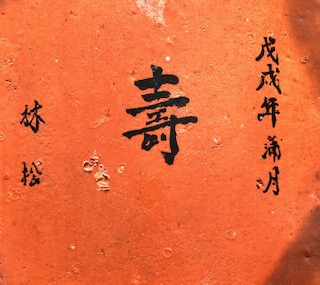 戊戌年蒲月
壽
林松